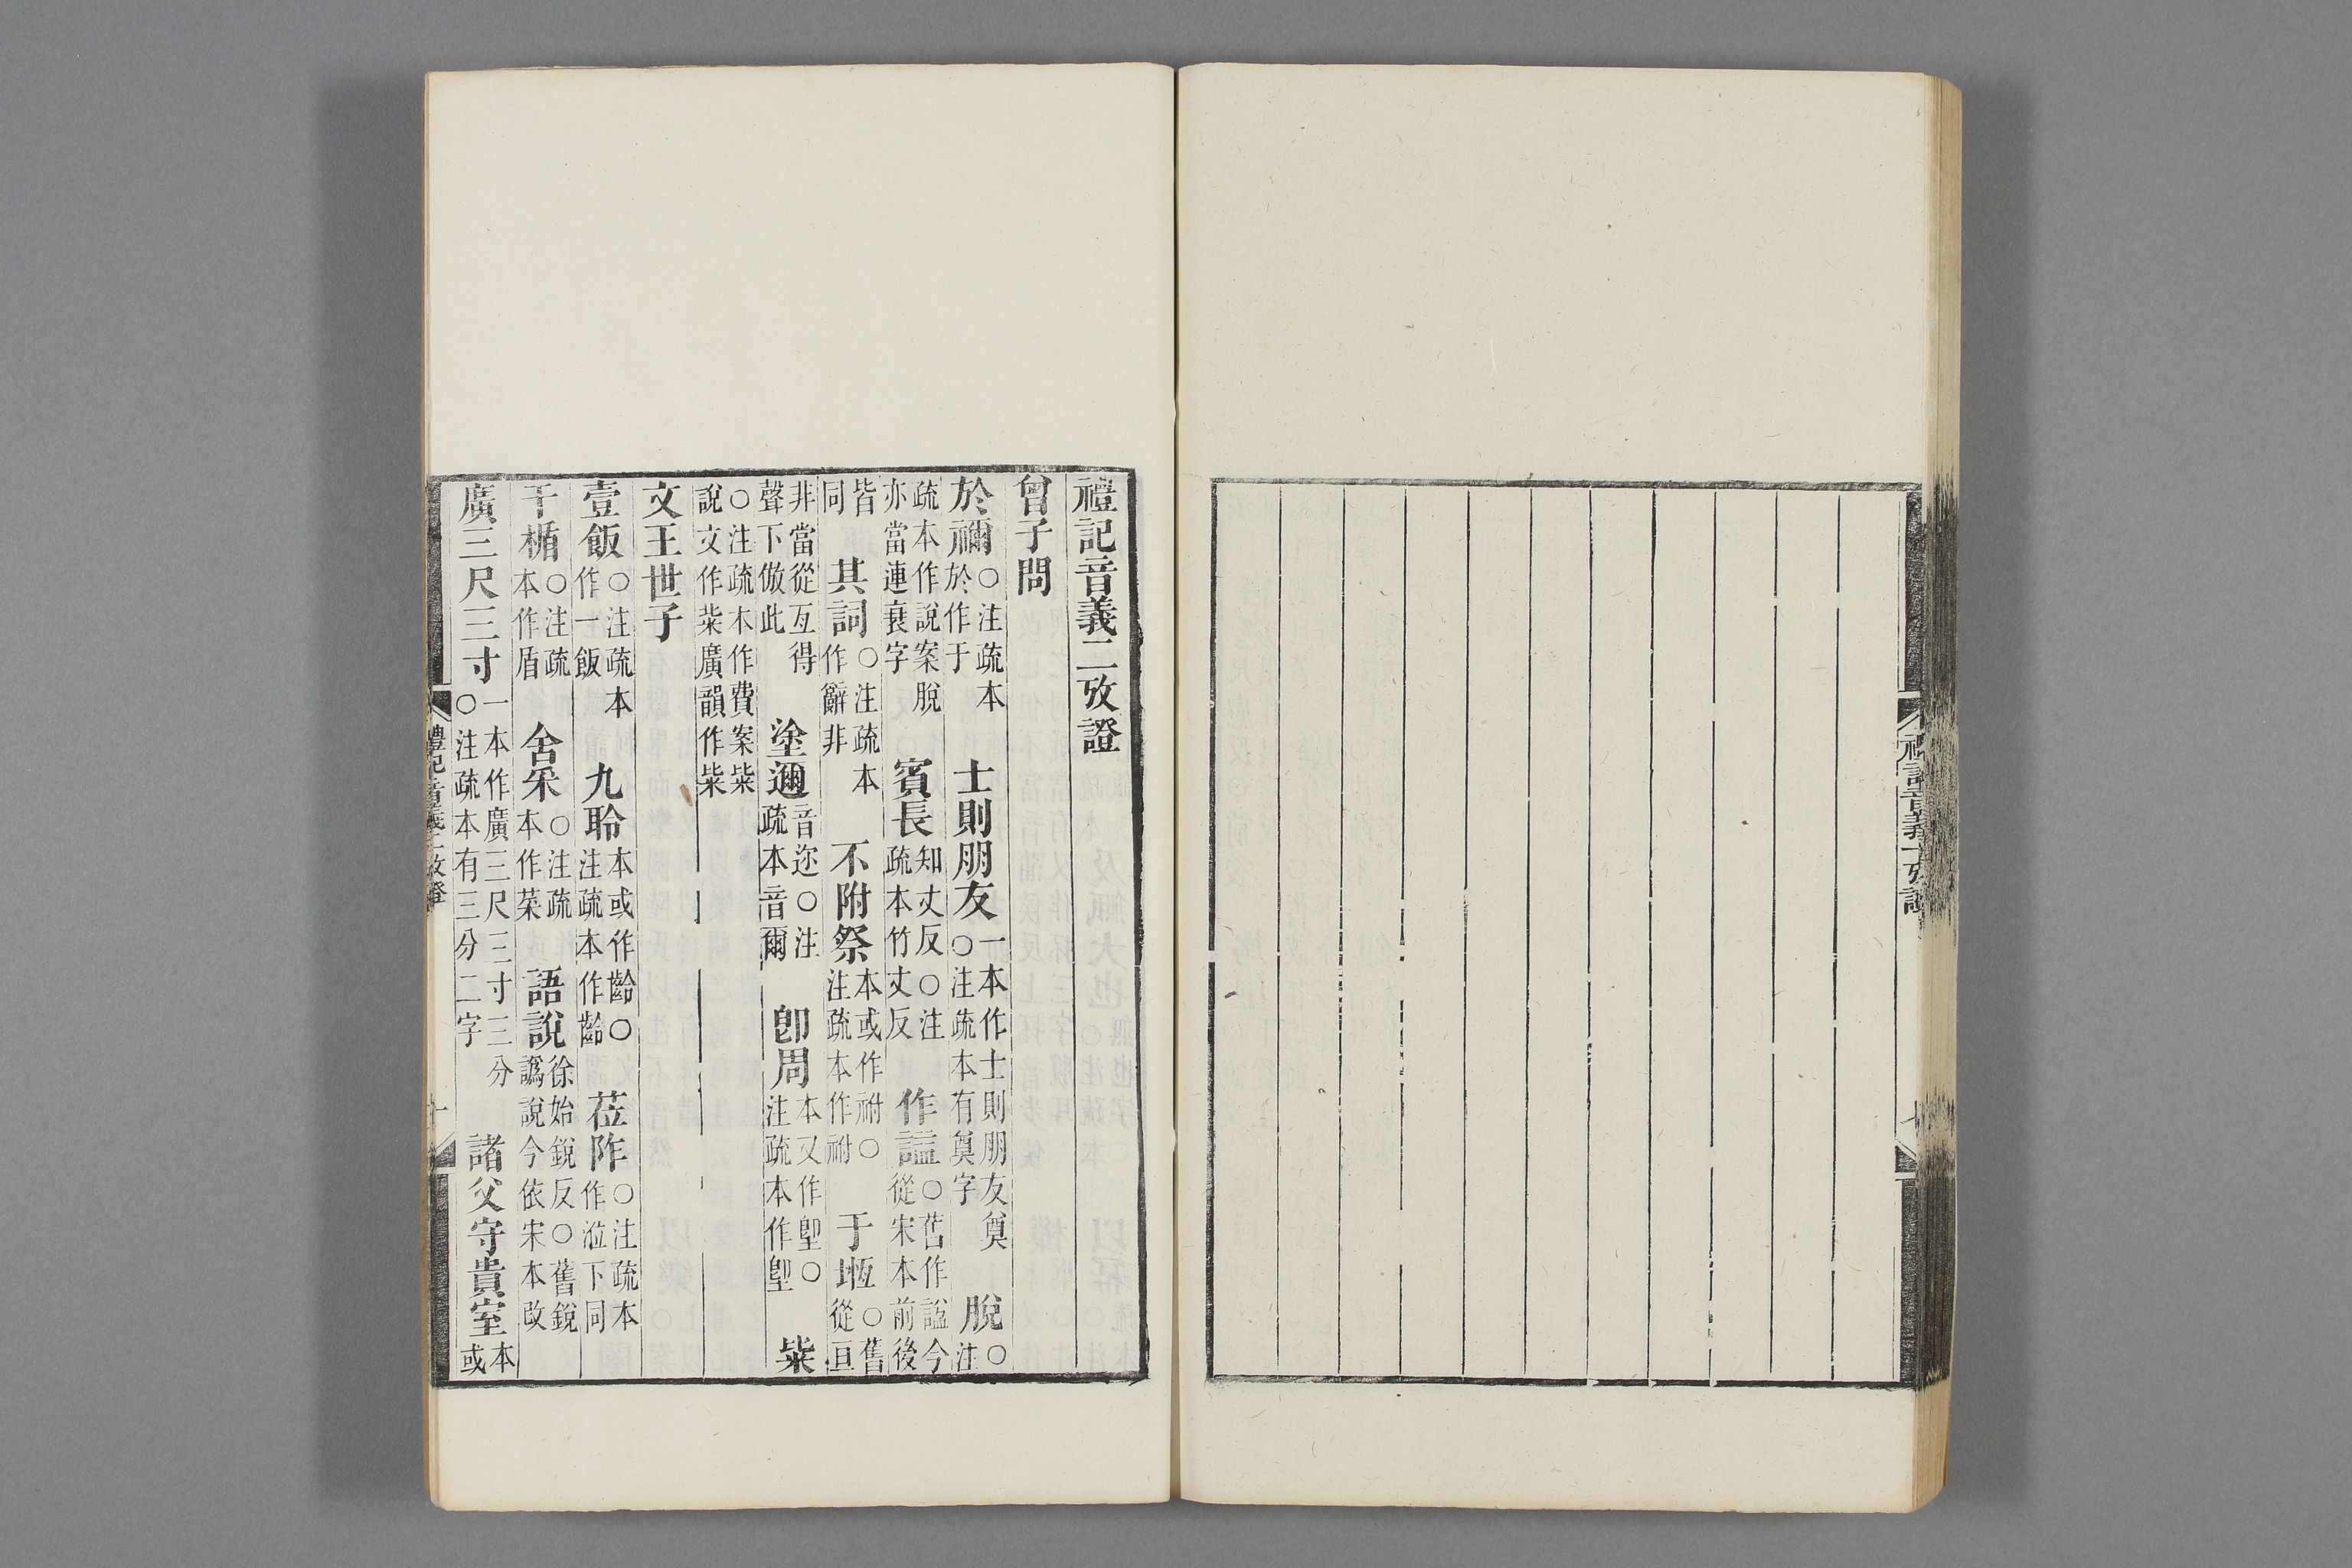 禮記音義一攷證
禮記音義二攷證
曾子問
於禰○注疏本於作于　士則朋友一本作士則朋友奠○注疏本有奠字　脫○注
疏本作說案脫亦當連衰字　賓長知丈反○注疏本竹丈反　作謚○舊作諡今從宋本前後
皆同　其詞○注疏本作辭非　不附祭本或作祔○注疏本作祔　于堩○舊從亘
非當從亙得聲下倣此　塗邇音迩○注疏本音爾　卽周本又作堲○注疏本作堲　粊
○注疏本作費案粊說文作枈廣韻作粊
文王世子
壹飯○注疏本作一飯　九聆本或作齡○注疏本作齡　莅阼○注疏本作涖下同
干楯○注疏本作盾　舍采○注疏本作菜　語說徐始銳反○舊銳譌說今依宋本改
廣三尺三寸一本作廣三尺三寸三分○注疏本有三分二字　諸父守貴室本或
禮記音義二攷證　十